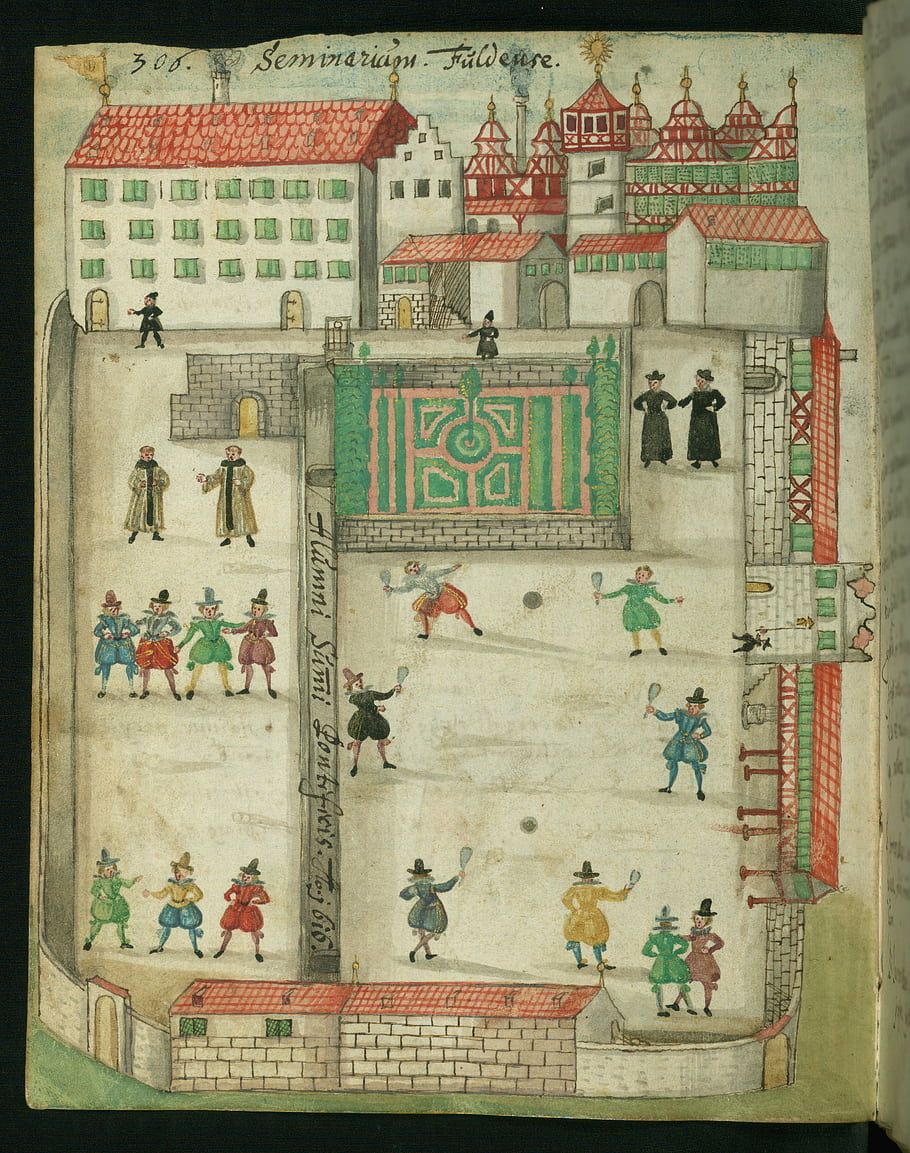 306. Seminariúm. Fúldense.
Alúmni Súmi Pontificis. Ao 1616.